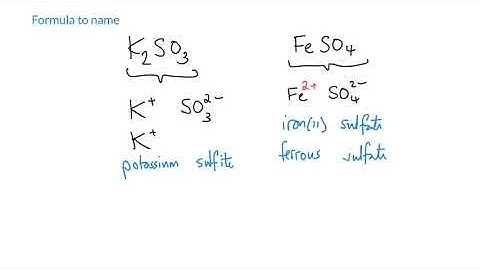 Formula to name
K₂SO₃
K⁺ SO₃²⁻
K⁺
potassium sulfite
FeSO₄
Fe²⁺ SO₄²⁻
iron(II) sulfate
ferrous sulfate